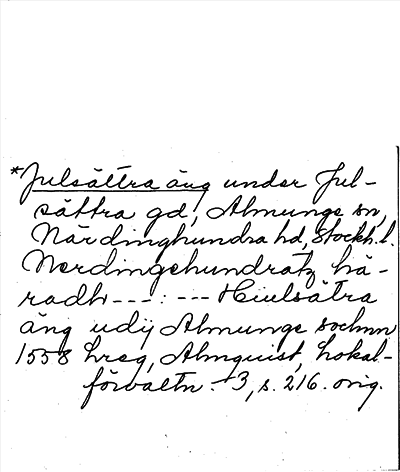 *Julsättra äng under Jul-
sättra gd, Almunge sn,
Närdinghundra hd, Stockh. l.
Nerdingehundratz hä-
radh ---: --- Hiulsätra
äng udij Almunge sochnn
1558 hreg, Almquist, Lokal-
förvaltn. 3, s. 216. orig.